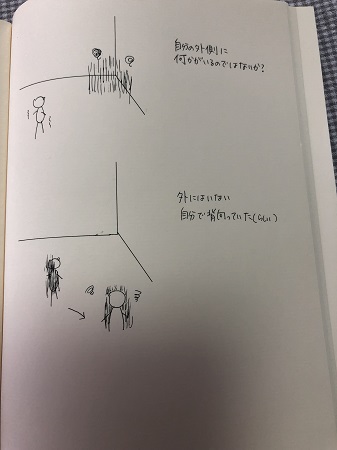 自分の外側に
何かがいるのではないか?
外にはいない
自分で背負っていた(らしい)